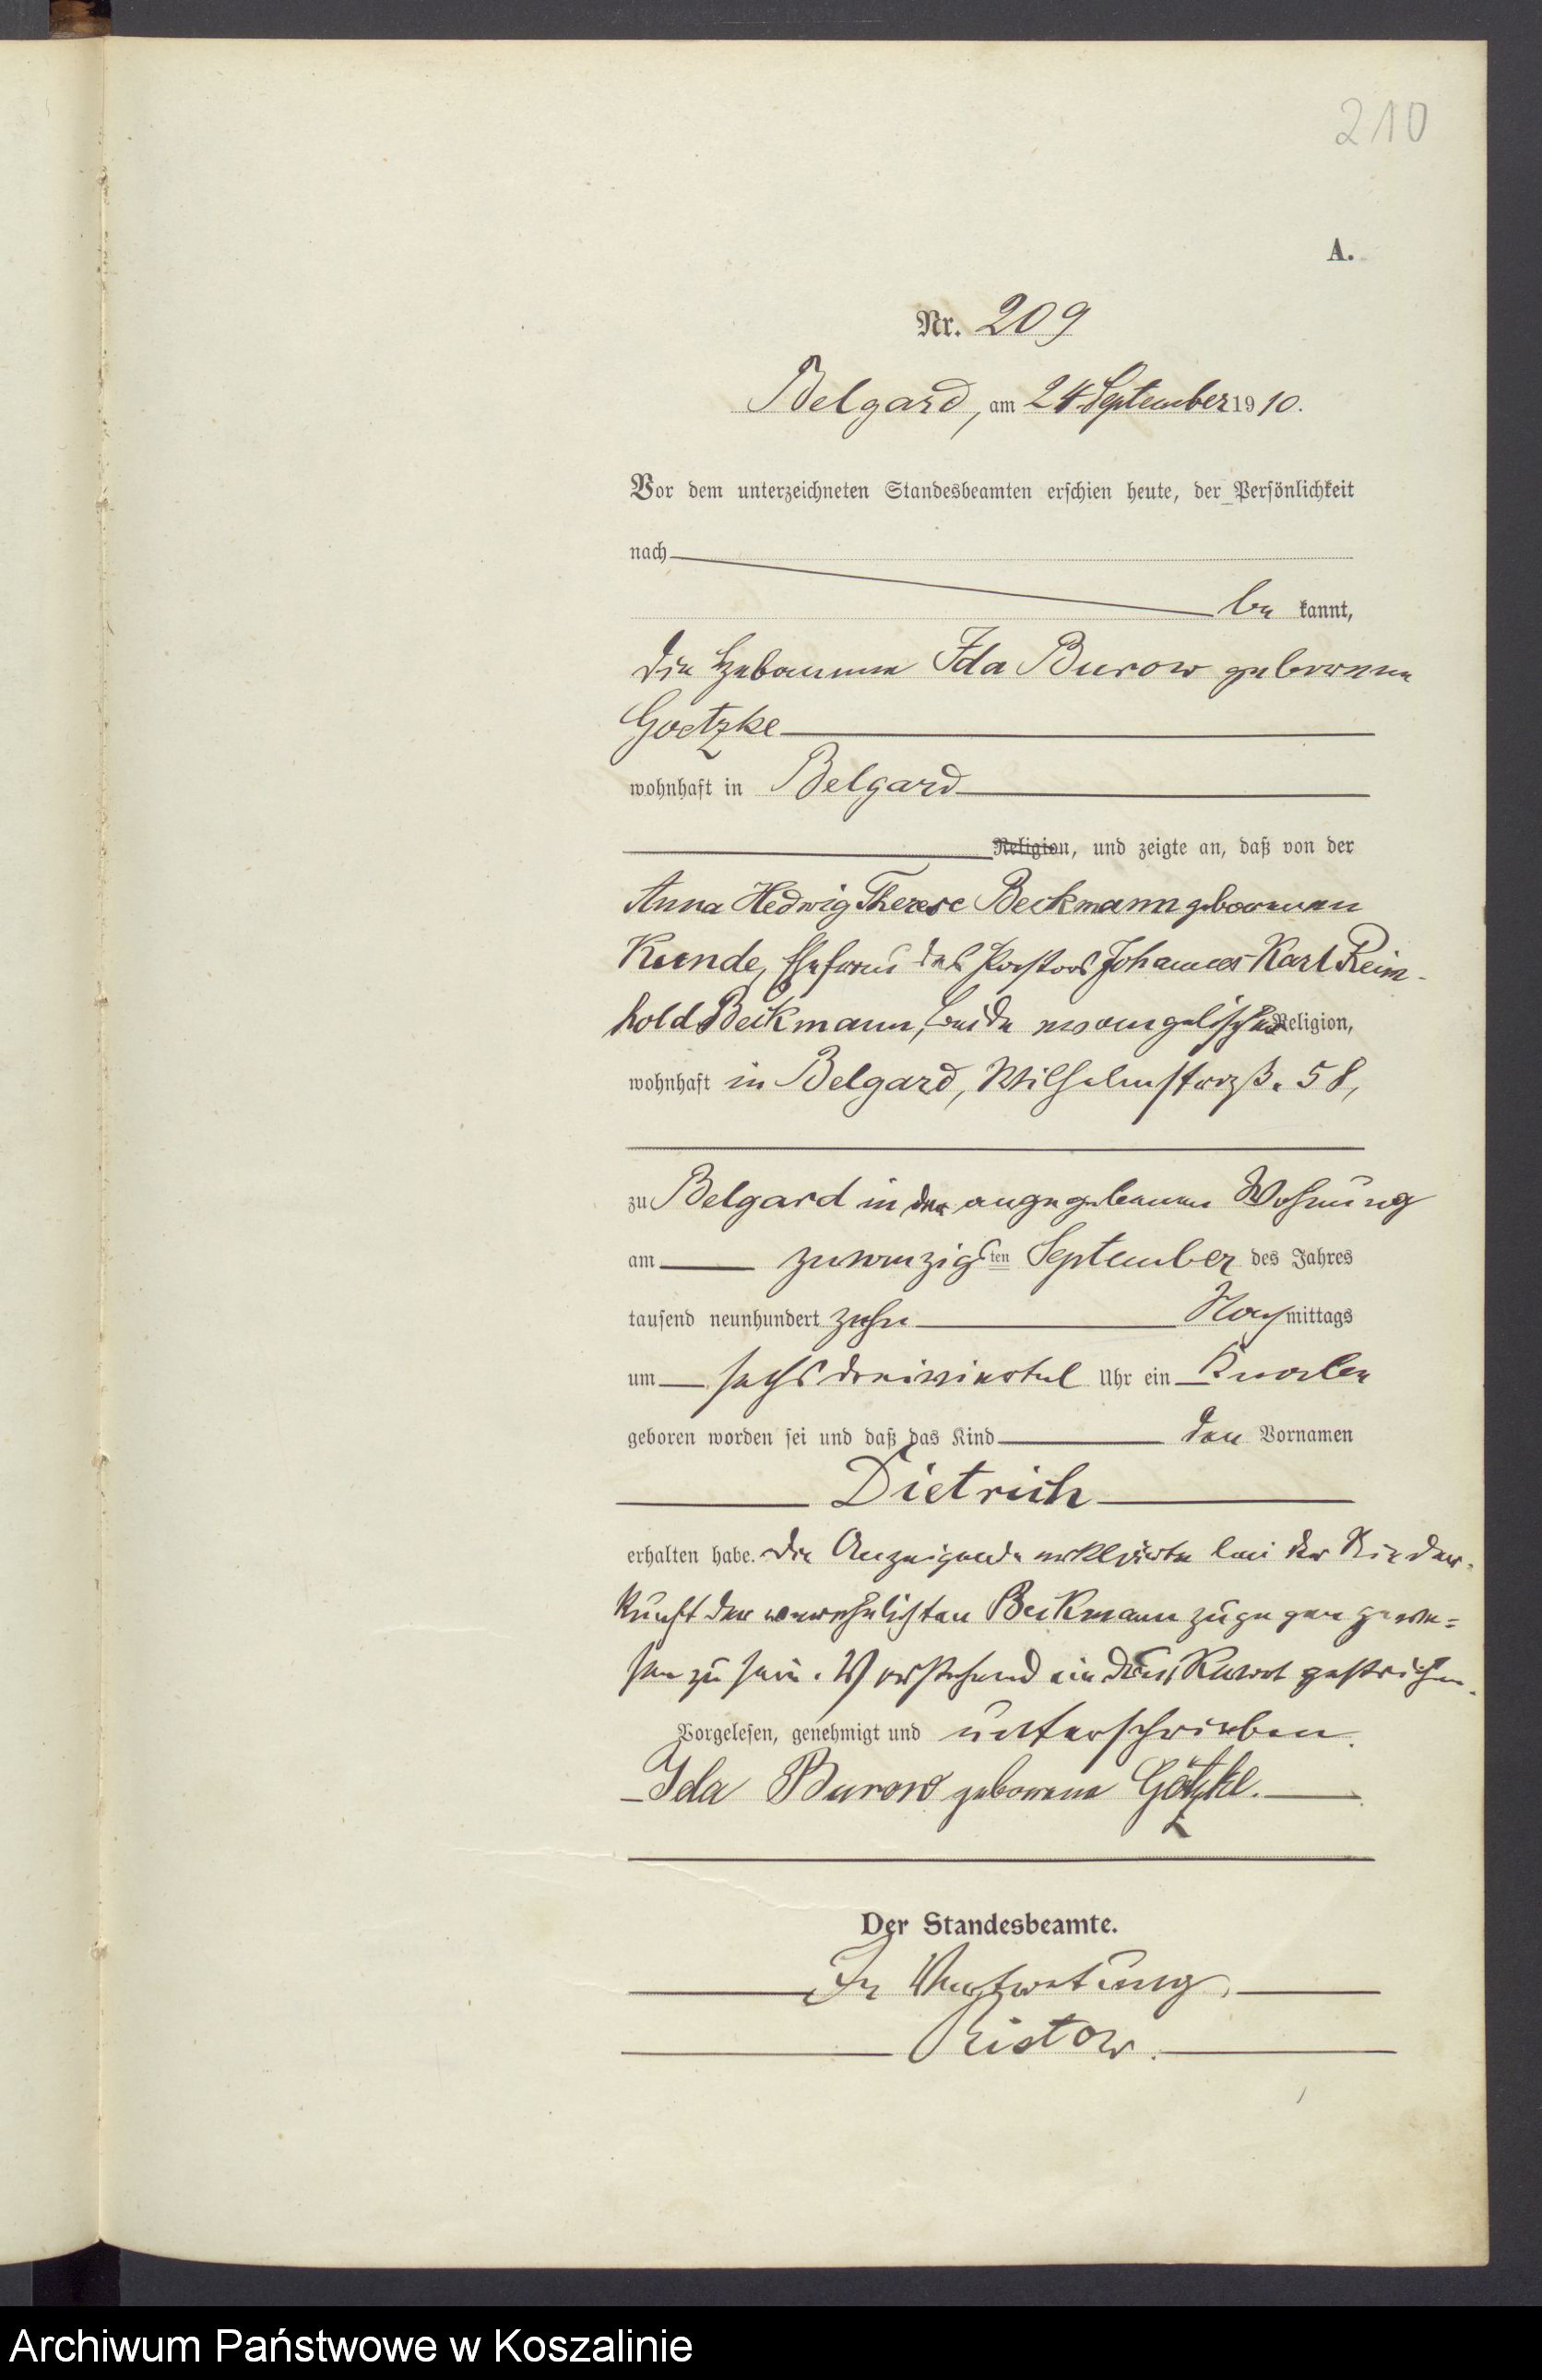 210
A.
Nr. 209
Belgard, am 24 September 1910.
Vor dem unterzeichneten Standesbeamten erschien heute, der Persönlichkeit
nach
be kannt,
die Hebamme Ida Burow geborene
Goetzke
wohnhaft in Belgard
Religion, und zeigte an, daß von der
Anna Hedwig Therese Beckmann geborenen
Kunde, Ehefrau des Pastors Johannes Karl Rein-
hold Beckmann, beide evangelischer Religion,
wohnhaft in Belgard, Wilhelmstraße 58,
zu Belgard in der angegebenen Wohnung
am zwanzigsten September des Jahres
tausend neunhundert zehn Nachmittags
um sechs dreiviertel Uhr ein Knabe
geboren worden sei und daß das Kind den Vornamen
Dietrich
erhalten habe. Die Anzeigende erklärte bei der Nieder-
kunft der verehelichten Beckmann zugegen gewe=
sen zu sein. Vorstehend ein Druckwort gestrichen.
Vorgelesen, genehmigt und unterschrieben.
Ida Burow geborene Götzke.
Der Standesbeamte.
In Vertretung.
Ristow.
Archiwum Państwowe w Koszalinie